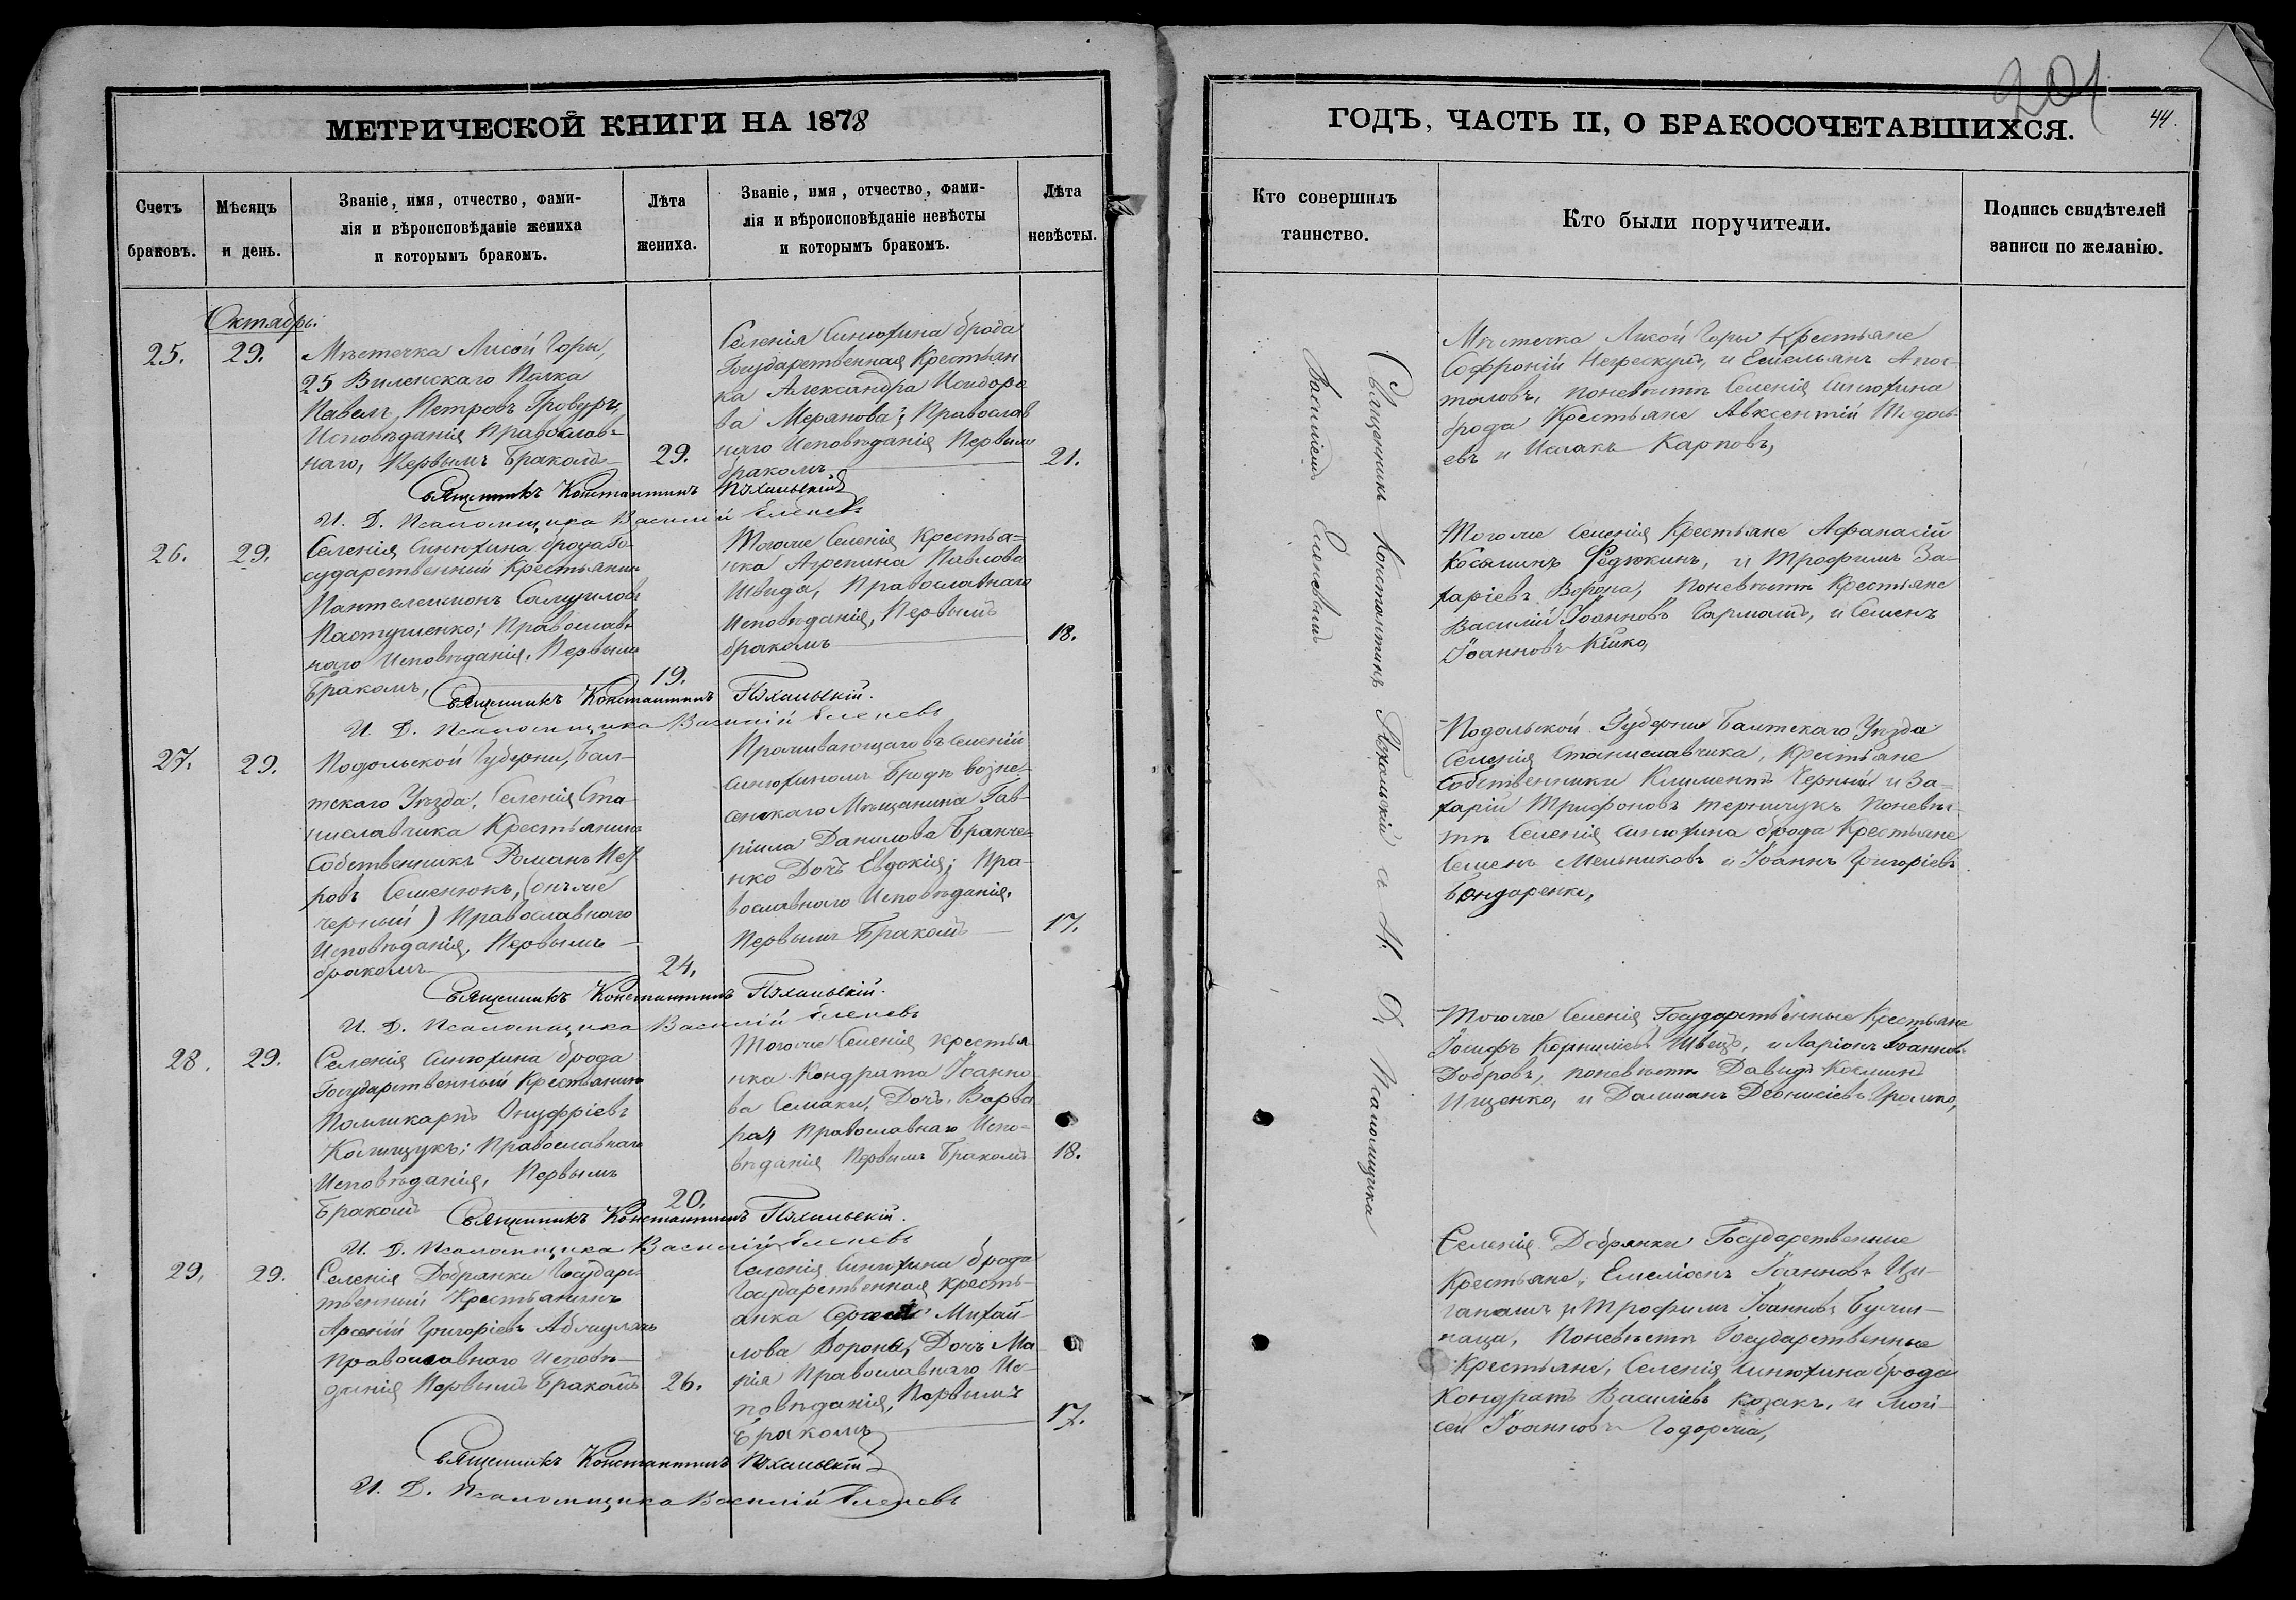 МЕТРИЧЕСКОЙ КНИГИ НА 1878
Счетъ браковъ.
Мѣсяцъ и день.
Званіе, имя, отчество, фами-
лія и вѣроисповѣданіе жениха
и которымъ бракомъ.
Лѣта жениха.
Званіе, имя, отчество, фами-
лія и вѣроисповѣданіе невѣсты
и которымъ бракомъ.
Лѣта невѣсты.
Октябрь.
25.
29.
Мѣстечка Лисой Горы,
25 Виленскаго Полка
Павелъ Петровъ
Исповѣданія Православ-
наго, Первымъ Бракомъ
29.
Селенія Синюхина брода
Государственная Крестьян
ка Александра Исидоро
ва Меранова; Православ
наго Исповѣданія Первым
бракомъ
21.
Священникъ Константинъ
И. Д. Псаломщика Василій
26.
29.
Селенія Синюхина брода Го-
сударственный Крестьянинъ
Пантелеимонъ Самуиловъ
Пастушенко; Православ
наго Исповѣданія, Первымъ
Бракомъ,
19.
Тогоже Селенія Крестья-
нка Агрепина Павлова
Швида, Православнаго
Исповѣданія, Первымъ
бракомъ
18.
Священникъ Константинъ
И. Д. Псаломщика Василій
27.
29.
Подольской Губерніи, Бал-
тскаго Уѣзда, Селенія Ста-
ниславчика Крестьянинъ
Собственникъ Романъ
ровъ Семенюкъ, (онъ же
черный) Православнаго
Исповѣданія, Первымъ
бракомъ
24.
Проживающаго въ Селеніи
Синюхиномъ Бродѣ Возне-
сенскаго Мѣщанина Гав-
ріила Данилова Бранче-
нко Дочь Евдокія; Пра-
вославнаго Исповѣданія,
Первымъ Бракомъ
17.
Священникъ Константинъ
И. Д. Псаломщика Василій
28.
29.
Селенія Синюхина брода
Государственный Крестьянинъ
Поликарпъ Онуфріевъ
Православнаго
Исповѣданія, Первымъ
Бракомъ
20.
Тогоже Селенія крестья
нка Кондрата Іоанно
ва Семаки, Дочь Варва
ра, Православнаго Испо-
вѣданія Первымъ Бракомъ
18.
Священникъ Константинъ
И. Д. Псаломщика Василій
29.
29.
Селенія Добрянки Государс-
твенный Крестьянинъ
Арсеній Григорьевъ
Православнаго Исповѣ-
данія Первымъ Бракомъ
26.
Селенія Синюхина брода
Государственная кресть-
янка Михай-
лова Ворона, Дочь Ма
рія Православнаго Ис-
повѣданія, Первымъ
Бракомъ
17.
Священникъ Константинъ
И. Д. Псаломщика Василій
201
44.
ГОДЪ, ЧАСТЬ II, О БРАКОСОЧЕТАВШИХСЯ.
Кто совершилъ таинство.
Кто были поручители.
Подпись свидѣтелей
записи по желанію.
Священникъ Константинъ и И. Д. Псаломщика
Василіемъ
Мѣстечка Лисой Горы Крестьяне
Софроній и Емельянъ Апос-
толовъ, поневѣстѣ Селенія Синюхина
брода Крестьяне Авксентій
евъ и Исаакъ Карповъ,
Тогоже Селенія Крестьяне Афанасій
Косминъ Редюкинъ, и Трофимъ За-
харіевъ Ворона, поневѣстѣ Крестьяне
Василій Іоанновъ и Семенъ
Іоанновъ
Подольской Губерніи Балтскаго Уѣзда
Селенія Станиславчика, Крестьяне
Собственники Климентъ Черный и За-
харій Трифоновъ поневѣс-
тѣ Селенія Синюхина брода Крестьяне
Семенъ Мельниковъ и Іоаннъ Григоріевъ
Бондаренко,
Тогоже Селенія Государственные Крестьяне
Іосифъ Корниліевъ Швецъ, и Ларіонъ Іоанновъ
Добровъ, поневѣстѣ Давидъ Косминъ
Ищенко, и Даміанъ Деонисіевъ
Селенія Добрянки Государственные
Крестьяне, Емеліанъ Іоанновъ
и Трофимъ Іоанновъ
поневѣстѣ Государственные
Крестьяне, Селенія Синюхина брода
Кондратъ Василіевъ Козакъ, и Мои-
сей Іоанновъ